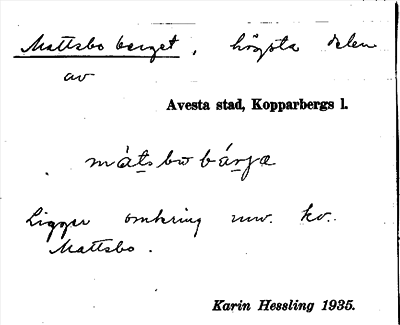 Mattsbo berget, högsta delen
av
Avesta stad, Kopparbergs l.
måtsbω bárjæ
Ligger omkring nuv. kv.
Mattsbo.
Karin Hessling 1935.